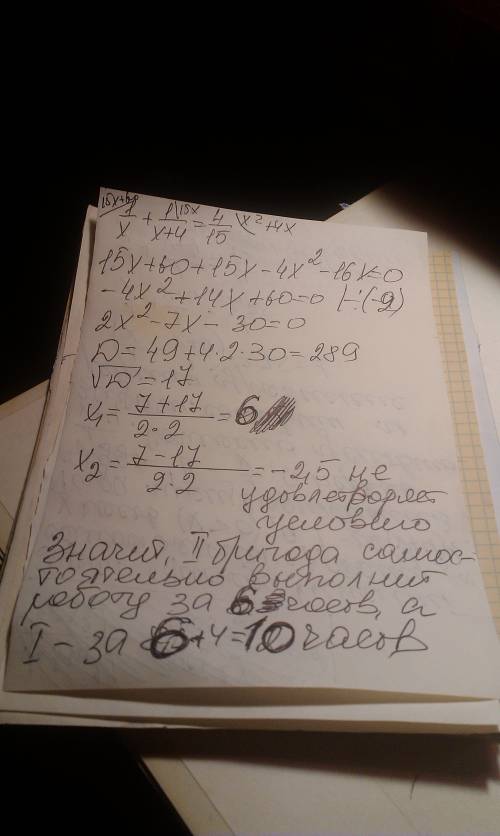 15x+60 15x x²+4x
1/x + 1/(x+4) = 4/15
15x+60+15x-4x²-16x=0
-4x²+14x+60=0 |:(-2)
2x²-7x-30=0
D=49+4·2·30=289
√D=17
x₁=(7+17)/(2·2)=6
x₂=(7-17)/(2·2)=-2,5 не
удовлетворяет
условию
Значит, II бригада самос-
тоятельно выполнит
работу за 6 часов, а
I - за 6+4=10 часов